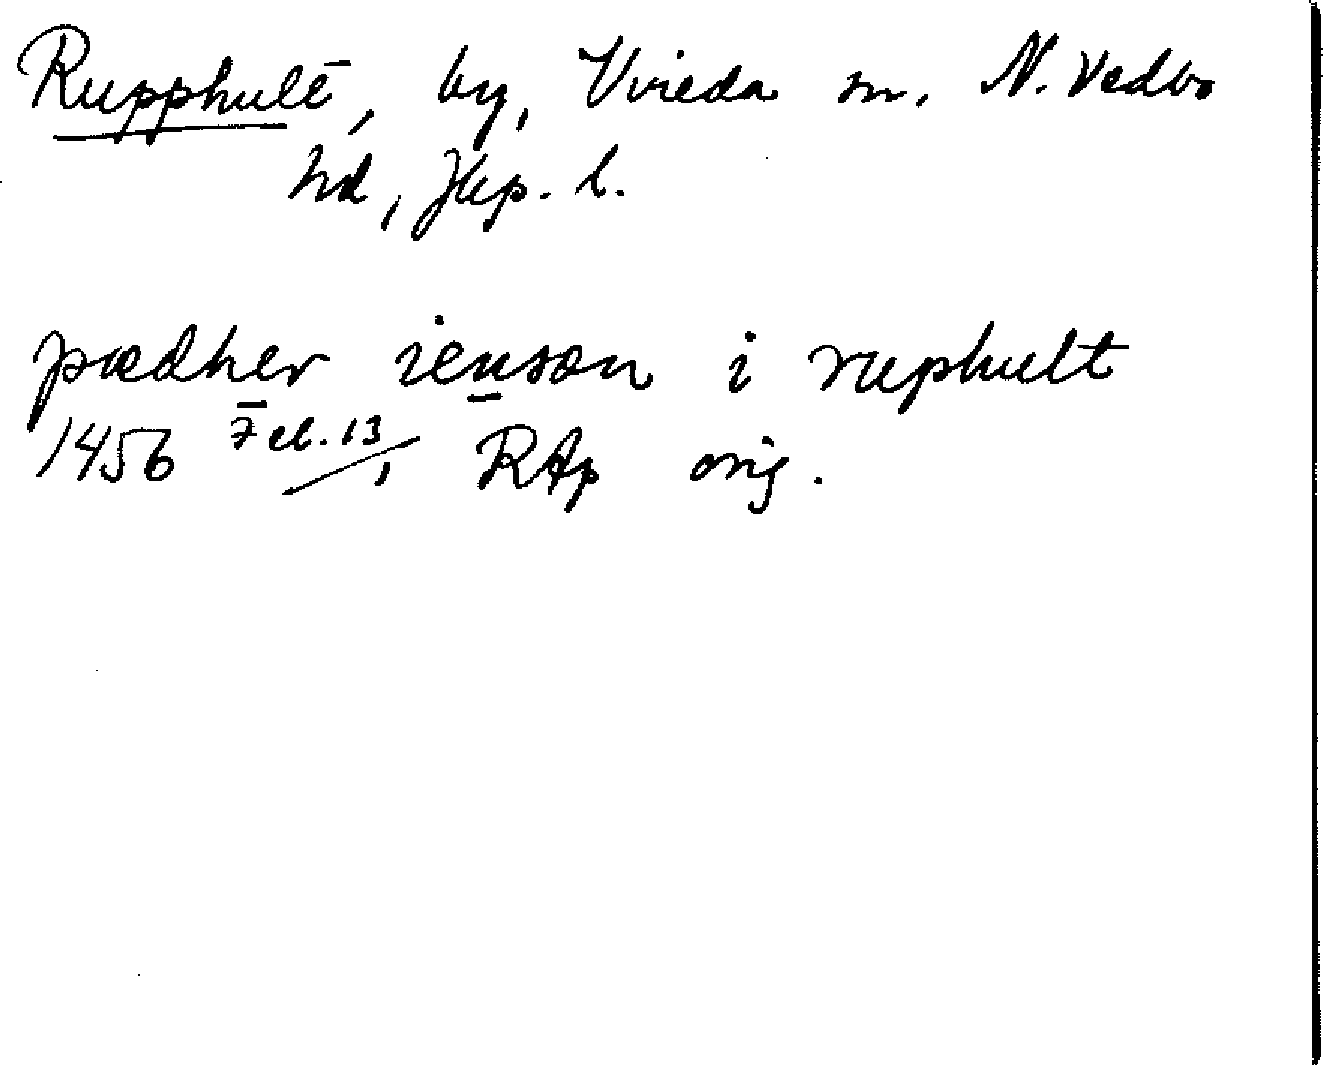 Rupphult, by, Vireda sn. N. Vedbo
hd, Jkp. l.
pædher ienson i ruphult
1456 Feb. 13, RAp orig.